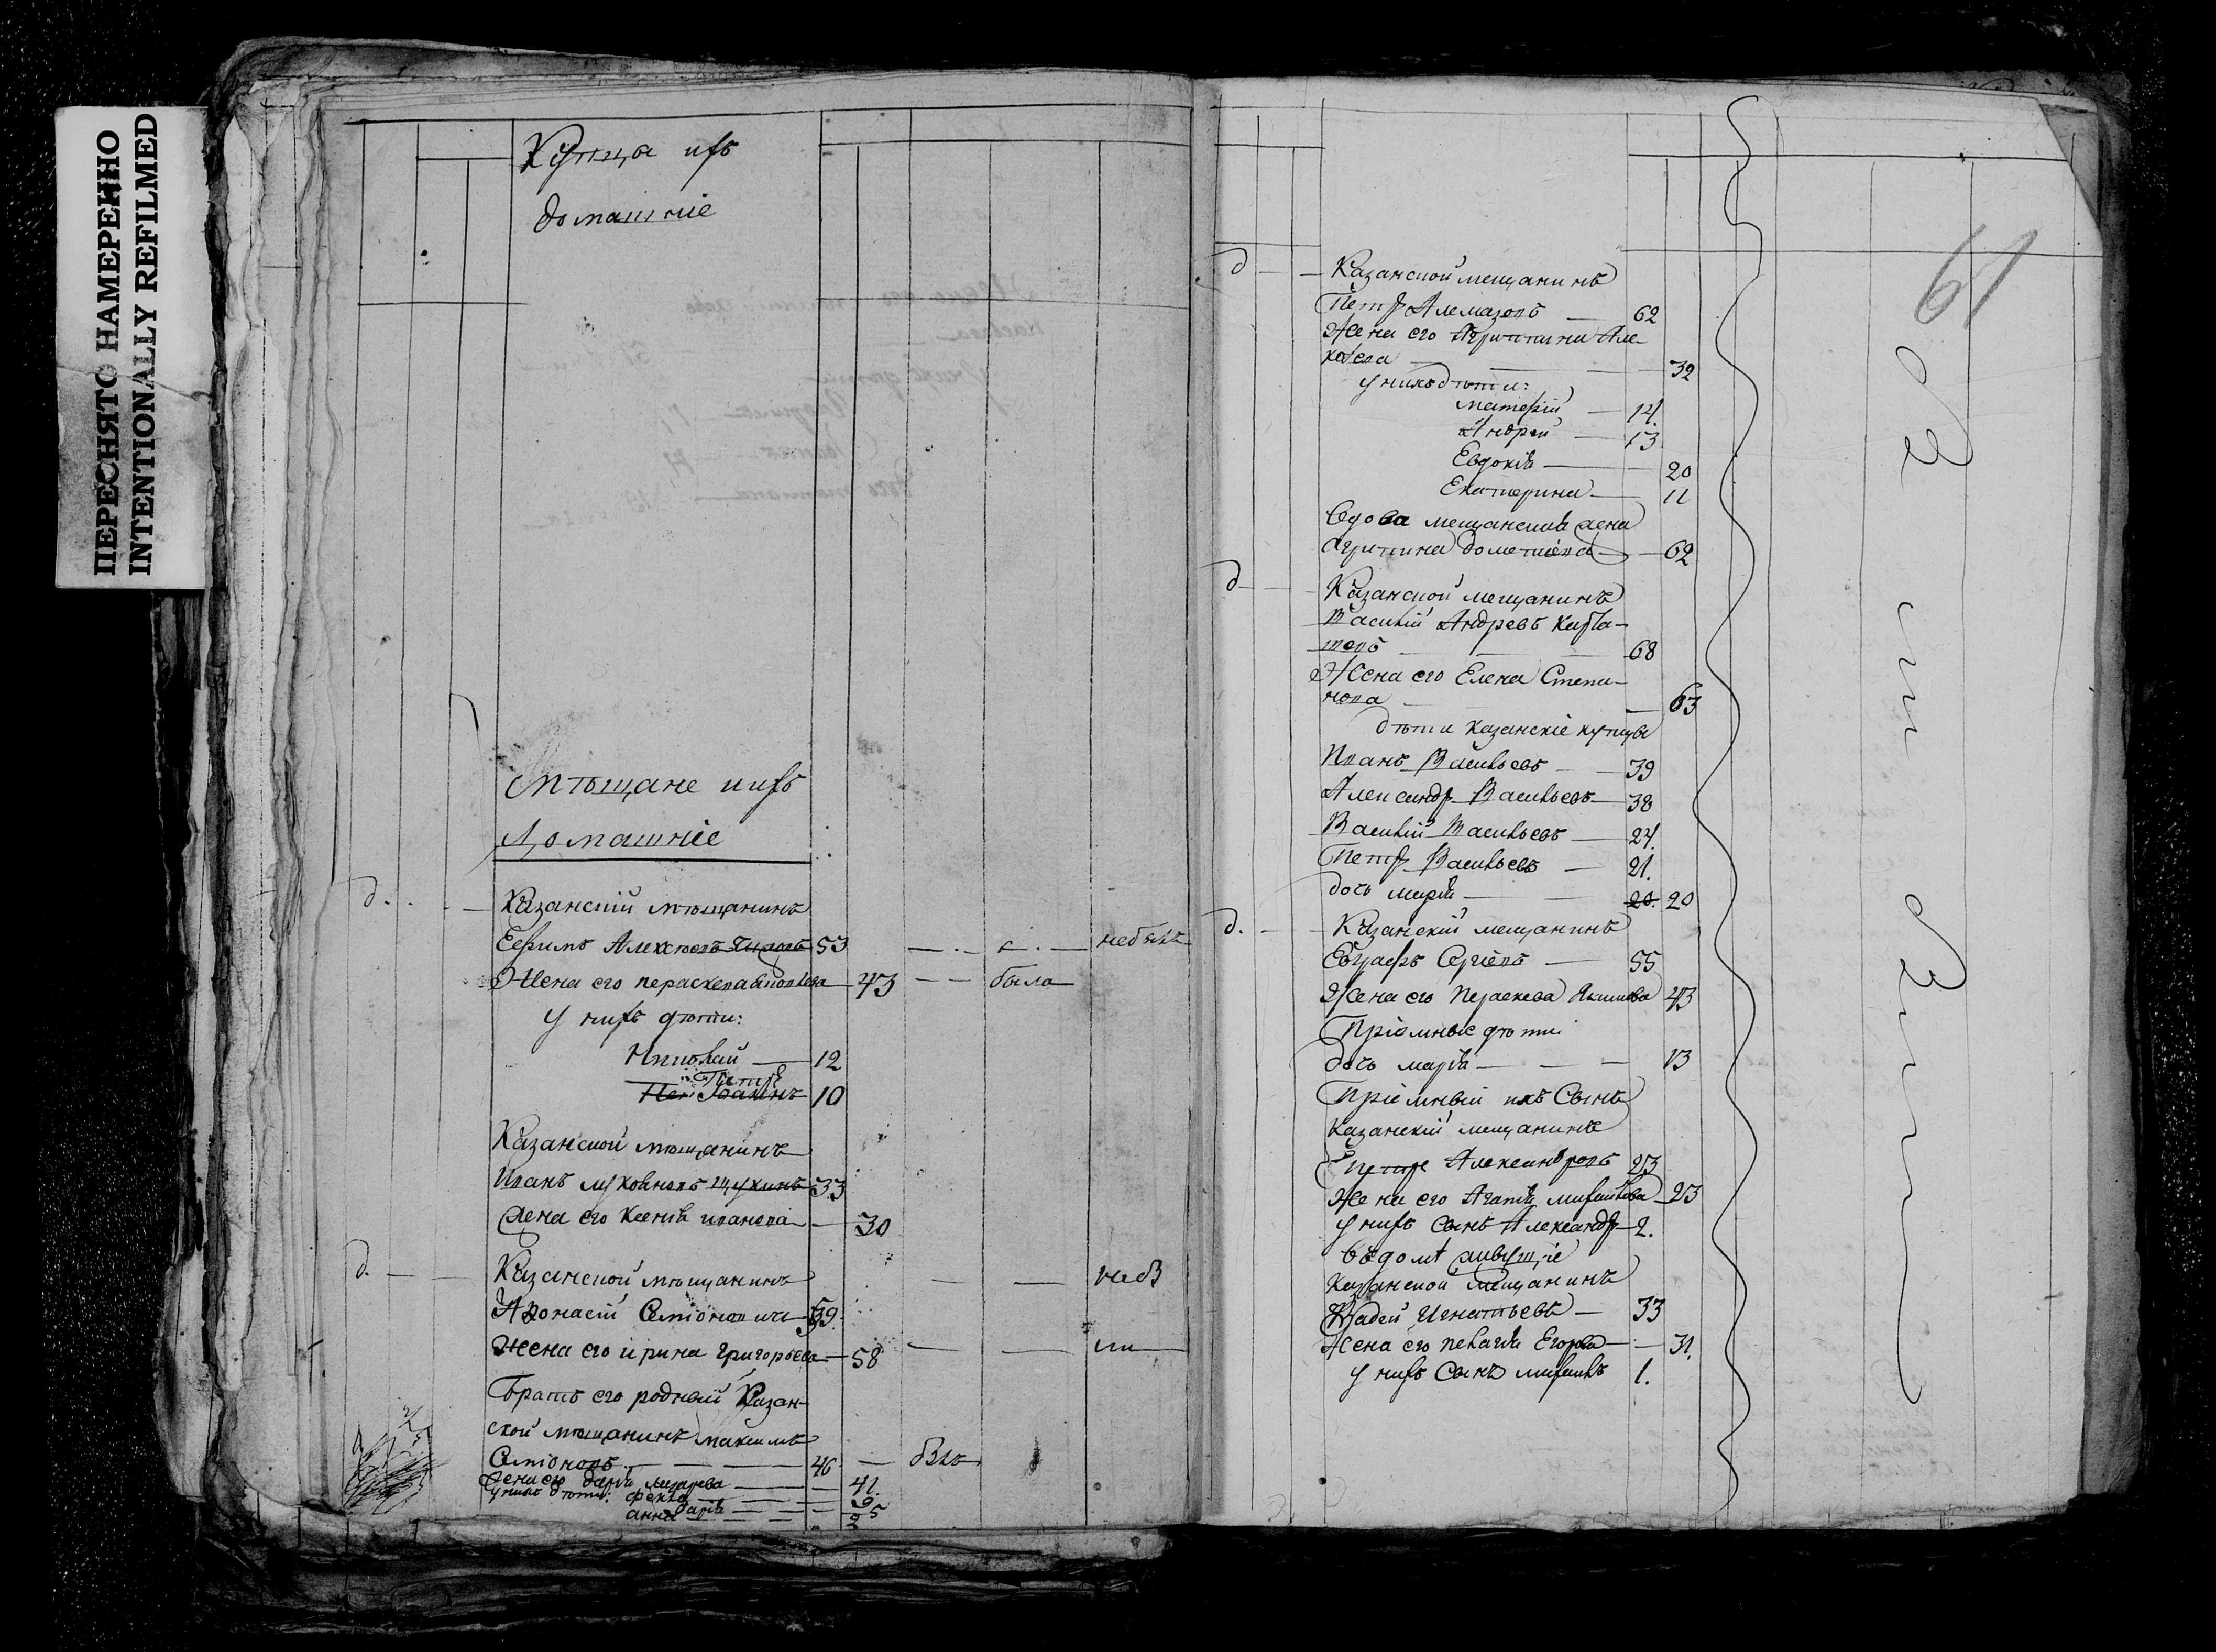 ПЕРЕСНЯТО НАМЕРЕННО
INTENTIONALLY REFILMED
Купцы ихъ
домашніе
Мѣщане иихъ
Домашніе
д.
Казанскій мѣщанинъ
Ефимъ Алексѣевъ 53 небылъ
Жена его параскева 43 была
У нихъ дѣти:
Николай 12
Петръ
10
Казанской мѣщанинъ
Иванъ Щукинъ 33
Жена его Ксенія иванова 30
д.
Казанской мѣщанинъ неб
Афонасій Семіоновичъ 59.
Жена его ирина григорьева 58
Братъ его родный Казан-
ской мѣщанинъ максимъ
Семіоновъ 46 былъ
Жена его Дарія 41.
у нихъ дѣти: фекла 9
Дарія 5
анна 2
61
д
Казанской мещанинъ
Петръ Алемазовъ 62
Жена его Агрипина Але-
ксѣева 32
у нихъ дѣти:
Матвѣй 14.
Андрей 13
Евдокія 20
Екатерина 11
Вдова мещанская жена
Агрипина Дометіева 62
д
Казанской мещанинъ
Василій Андревъ
68
Жена его Елена Степа-
нова 63
дѣти казанскіе купцы
Иванъ Васильевъ 39
Александръ Васильевъ 38
Василій Васильевъ 24.
Петръ Васильевъ 21.
дочь марія 20. 20
д.
Казанскій мещанинъ
Евграфъ Сергіевъ 55
Жена его Параскева Якимова 43
Пріемные дѣти
дочь марія 13
Пріемный ихъ Сынъ
Казанскій мещанинъ
Петръ Александровъ 23
Жена его Агапія михайлова 23
у нихъ сынъ Александръ 2.
въ домѣ живущіе
Казанской мещанинъ
Фадей Игнатьевъ 33
Жена его пелагія Егорова 31.
у нихъ Сынъ михаилъ 1.